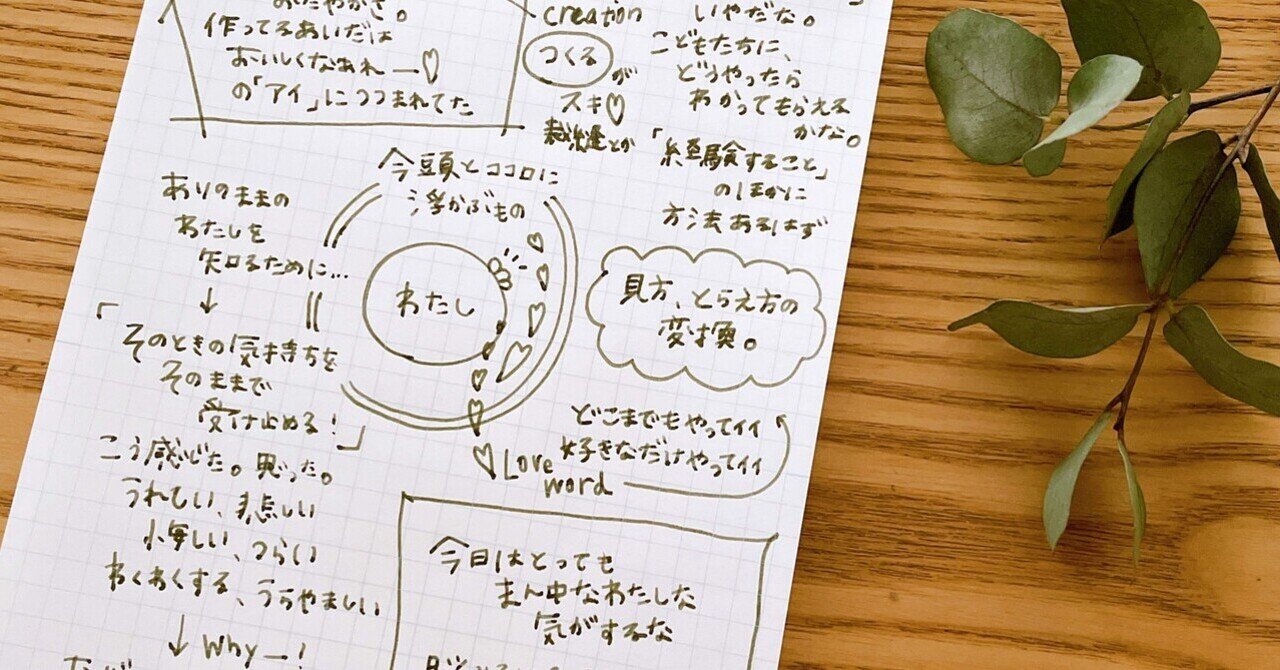 作ってるあいだは
おいしくなあれー♡
の「アイ」につつまれてた
creation
つくる
が
スキ♡
裁縫とか
いやだな。
こどもたちに、
どうやったら
わかってもらえる
かな。
「経験すること」
のほかに
方法あるはず
今頭とココロに
浮かぶもの
わたし
ありのままの
わたしを
知るために…
↓
「そのときの気持ちを
そのままで
受け止める!」
こう感じた。思った。
うれしい、悲しい
悔しい、つらい
わくわくする、うらやましい
↓ Why—!
見方、とらえ方の
変換。
どこまでもやってイイ
好きなだけやってイイ
♡Love
word
今日はとっても
まん中なわたしな
気がするな